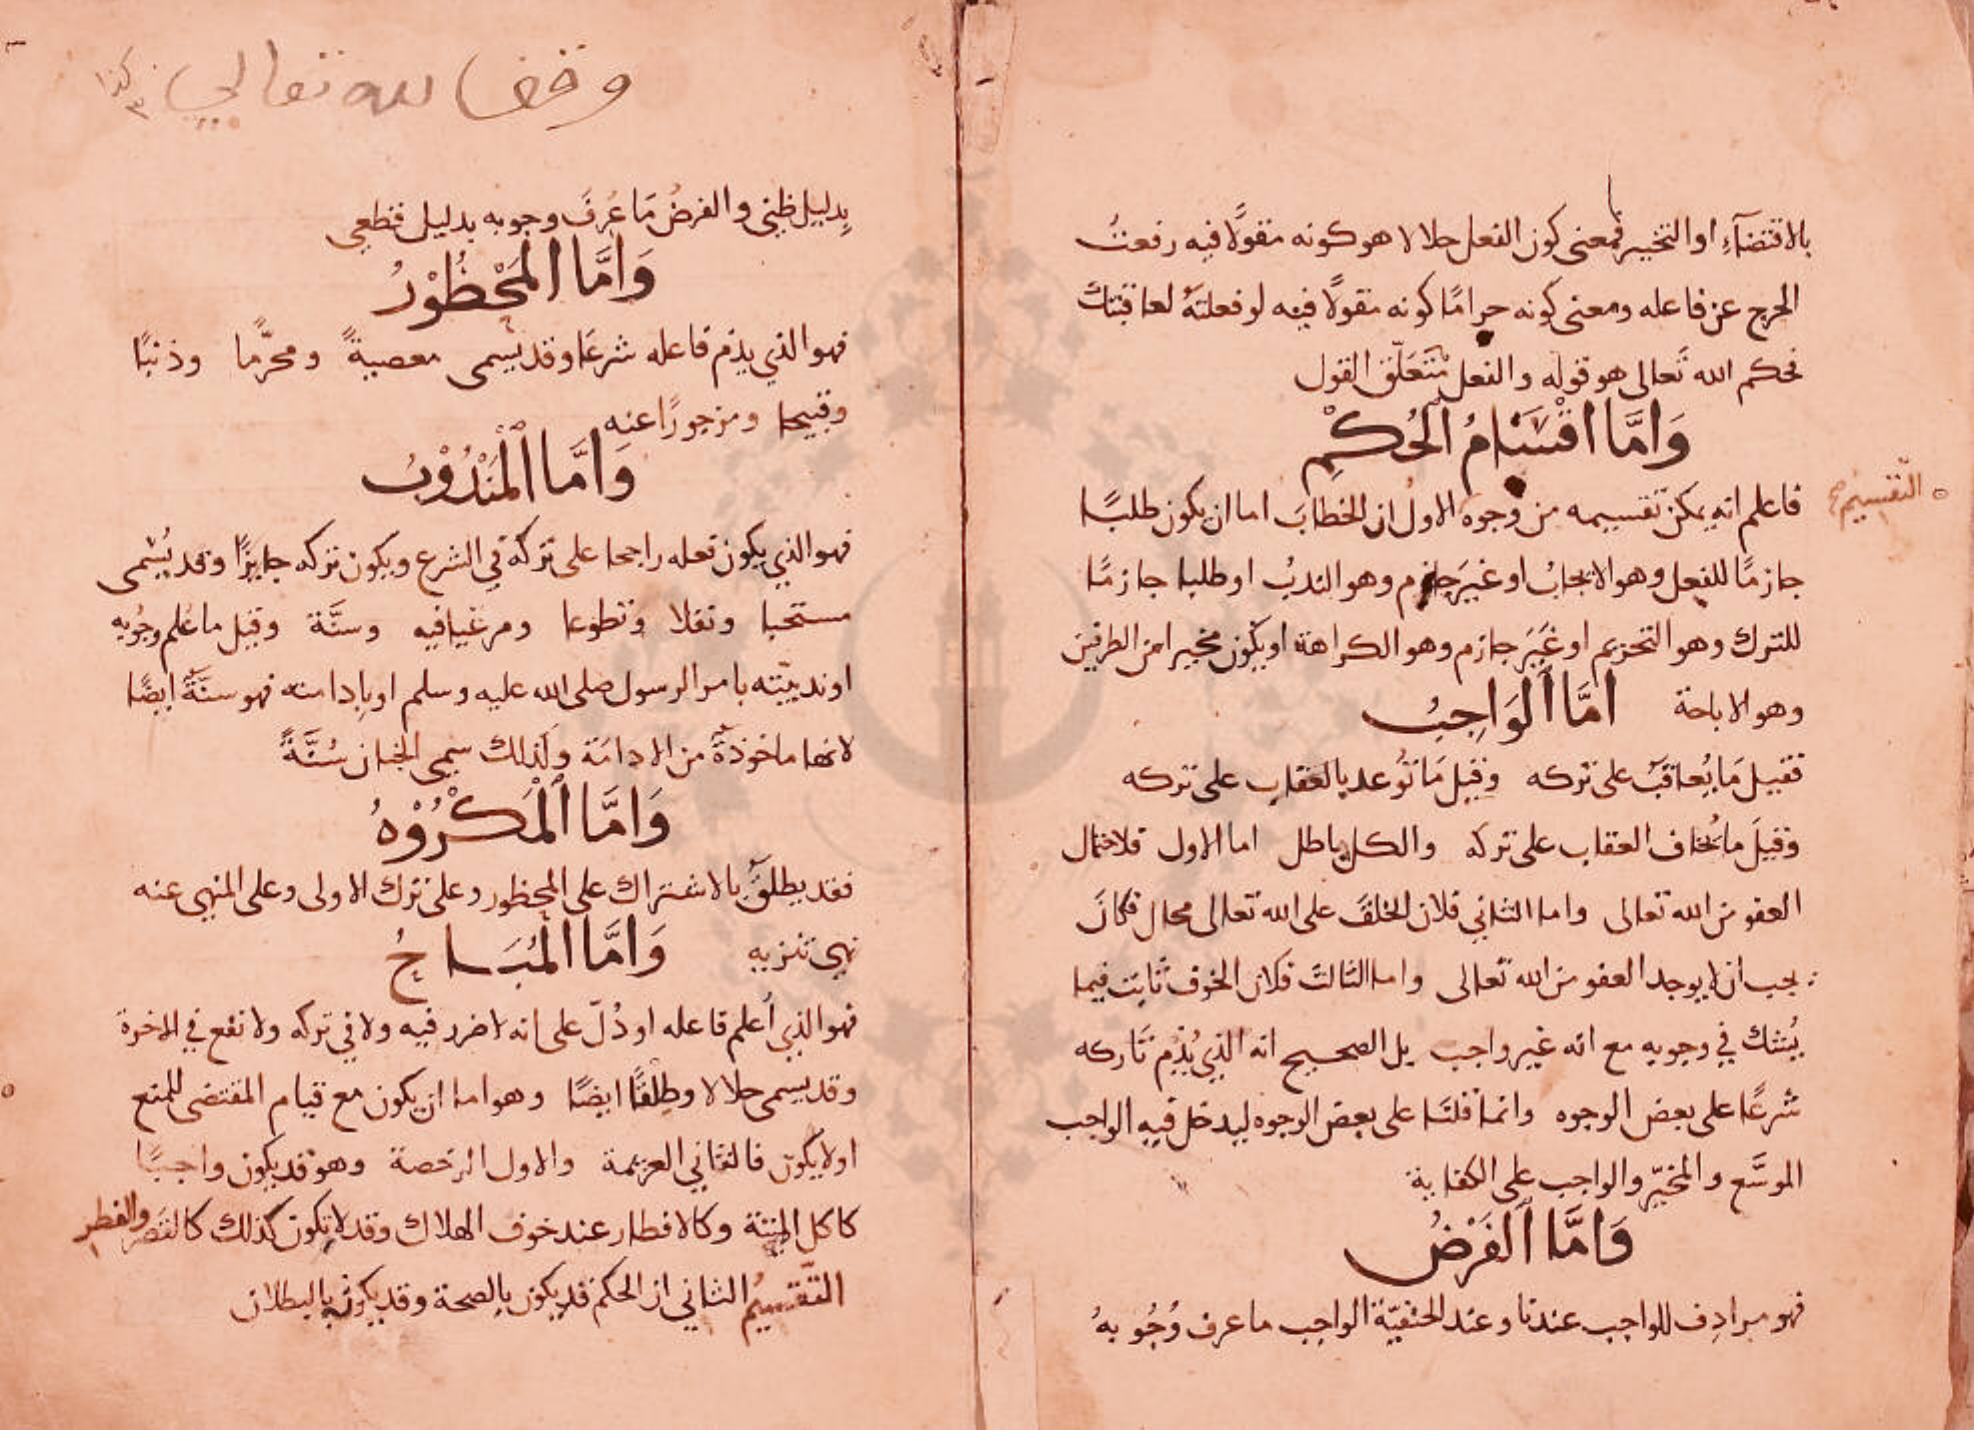 بالاقتضآءِ او التخيير فمعنى كون الفعل حلالا هو كونه مقولًا فيه رفعتُ
الحرج عن فاعله ومعنى كونه حرامًا كونه مقولًا فيه لو فعلتَهُ لعاقبتك
فحكم الله تَعالى هو قوله والفعل مُتَعَلّق القول
وَامَّا اقْسَامُ الْحُكْمِ
فاعلم انه يمكن تقسيمه من وجوه الاولُ ان الخطابَ اما ان يكون طلبًا
التقسيم صح
جازمًا للفعل وهو الايجابُ او غيرَ جازم وهو الندبُ او طلبا جازمًا
للترك وهو التحريم او غَيَر جازم وهو الكراهة او يكون مخيرا من الطرفين
وهو الاباحة امَّا الْوَاجِبُ
فقيل مَا يُعاقَبُ على تركه وقيل مَا تُوُعد بالعقاب على تركه
وقيلَ ما يُخاف العقاب على تركه والكل باطل اما الاول فلاحتمال
العفو من الله تعالى واما الثاني فلان الخلفَ على الله تعالى محال فكانَ
يجب ان لا يوجد العفو من الله تعالى واما الثالثَ فلان الخوف ثابت فيما
يُشك في وجوبه مع انه غير واجب بل الصحيح انه الذي يُذم تاركه
شرعًا على بعض الوجوه وانما قلنَا على بعض الوجوه ليدخل فيه الواجب
الموسَّع والمخيّر والواجب على الكفاية
وَامَّا الْفَرْضُ
فهو مرادِف للواجب عندنا وعند الحنفيّة الواجب ما عرف وُجُوبهُ
وقف لله تعالى
بِدليل ظني والفرضُ مَا عُرفَ وجوبه بدليل قطعي
وَامَّا الْمَحْظُوْرُ
فهو الذي يذم فاعله شرعًا وقد يسمى معصيةً ومحرَّما وذنبًا
وقبيحا ومزجورًا عنه
وَامَّا الْمَنْدُوْبُ
فهو الذي يكون فعله راجحا على تركه في الشرع ويكون تركه جايزًا وقد يُسْمى
مستحبا ونفلا وتطوعا ومرغبا فيه وسنَّة وقيل ما عُلم وجُوبه
او ندبيّته بامر الرسول صلى الله عليه وسلم او بادامته فهو سنَّةٌ ايضًا
لانها ماخوذةٌ من الادامَة ولذلك سمي الختان سُنَّةً
وَامَّا الْمَكْرُوْهُ
فقد يطلقُ بالاشتراك على المحظور وعلى ترك الاولى وعلى المنهي عنه
نهي تنزيه وَامَّا الْمُبَاحُ
فهو الذي أُعلم فاعله او دُلّ على انه لا ضرر فيه ولا في تركه ولا نفع في الاخرة
وقد يسمى حلالا وطِلْقًا ايضًا وهو اما ان يكون مع قيام المقتضى للمنع
او لا يكون فالثاني العزيمة والاول الرخصة وهو قد يكون واجبًا
كاكل الميتة وكالافطار عند خوف الهلاك وقد لا يكون كذلك كالقَصر والفطر
التّقسيمُ الثاني ان الحكم قد يكون بالصحة وقد يكون بالبطلان